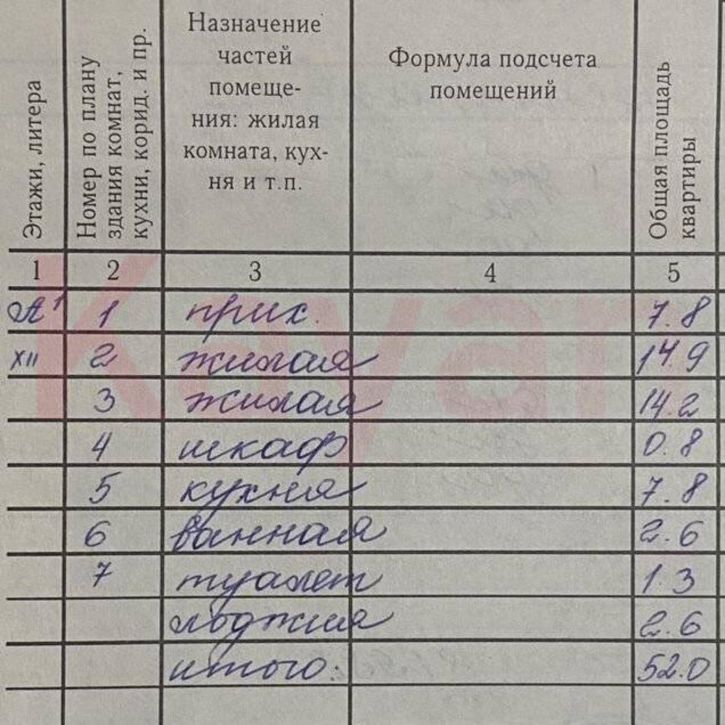 Этажи, литера
Номер по плану
здания комнат,
кухни, корид. и пр.
Назначение
частей
помеще-
ния: жилая
комната, кух-
ня и т.п.
Формула подсчета
помещений
Общая площадь
квартиры
1 2 3 4 5
А¹ 1 прих. 7.8
XII 2 жилая 14.9
3 жилая 14.2
4 шкаф 0.8
5 кухня 7.8
6 ванная 2.6
7 туалет 1.3
лоджия 2.6
итого: 52.0